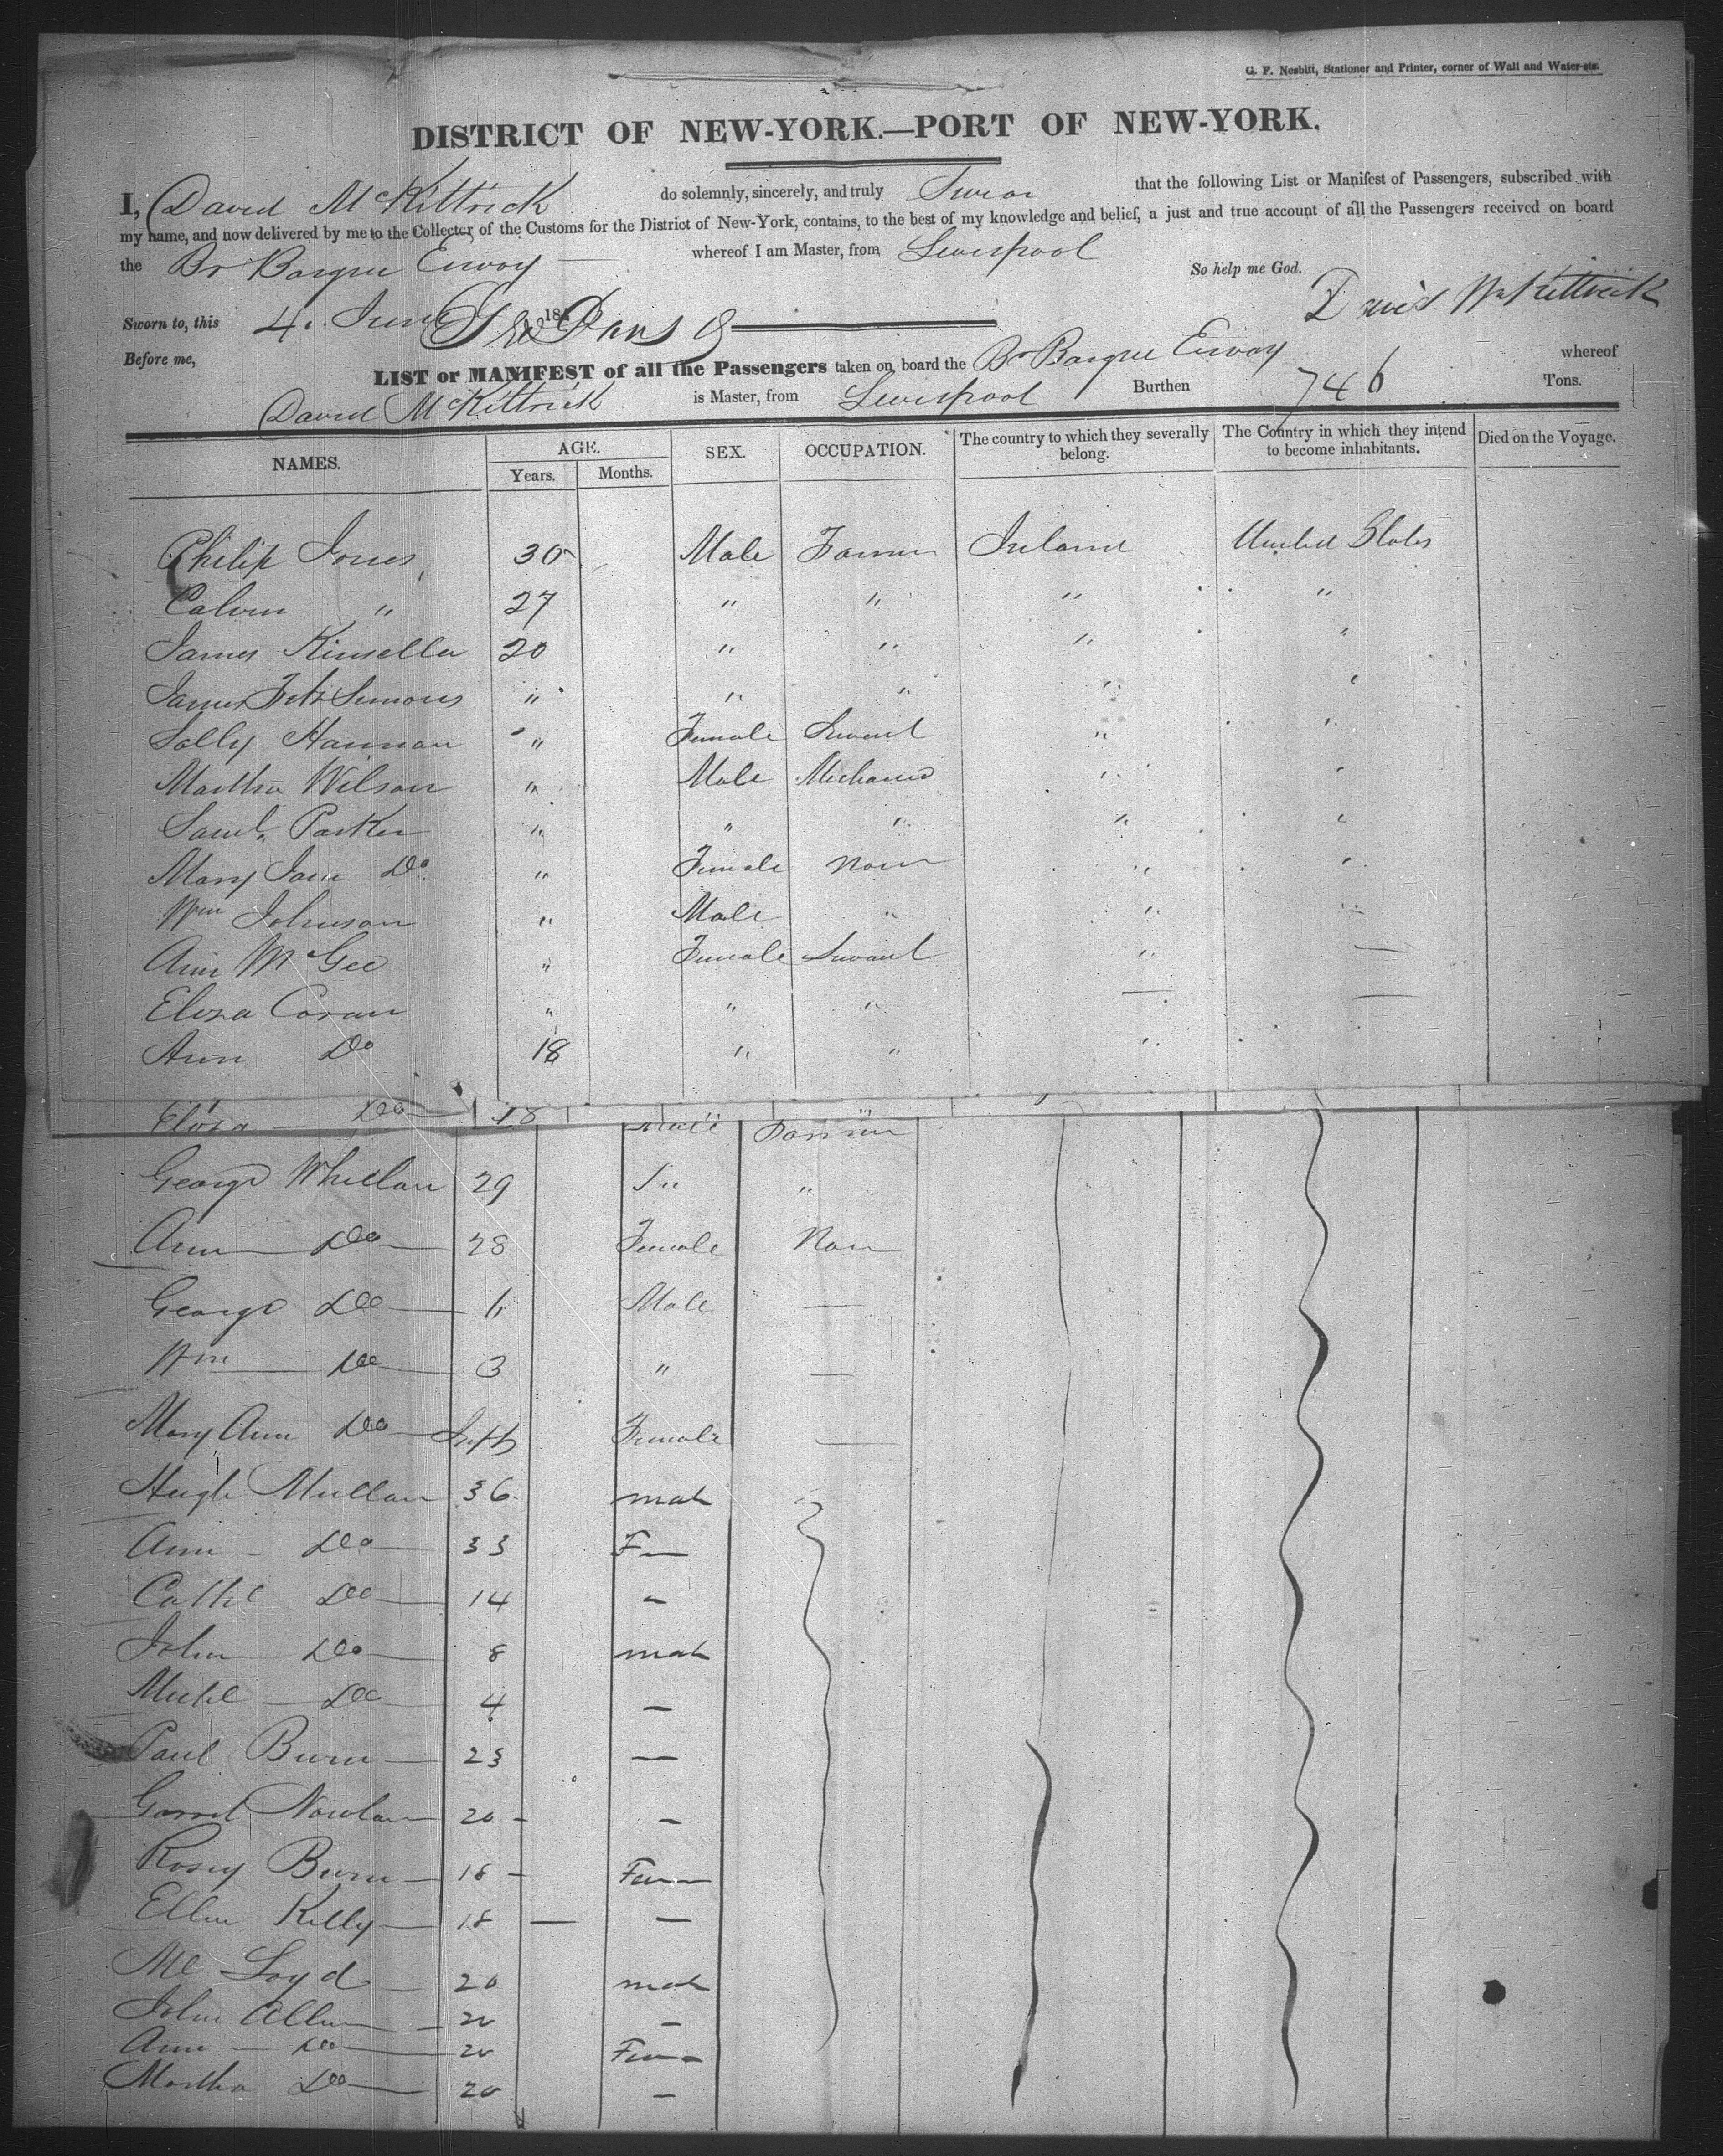 G. F. Nesbitt, Stationer and Printer, corner of Wall and Water-sts.
DISTRICT OF NEW-YORK.—PORT OF NEW-YORK.
I, David McKittrick do solemnly, sincerely, and truly Swear that the following List or Manifest of Passengers, subscribed with
my name, and now delivered by me to the Collector of the Customs for the District of New-York, contains, to the best of my knowledge and belief, a just and true account of all the Passengers received on board
the Br Barque Envoy whereof I am Master, from Liverpool
So help me God.
David McKittrick
Sworn to, this 4. June 18
Before me,
LIST or MANIFEST of all the Passengers taken on board the Br Barque Envoy whereof
David McKittrick is Master, from Liverpool Burthen 746 Tons.
NAMES. AGE. Years. Months. SEX. OCCUPATION. The country to which they severally belong. The Country in which they intend to become inhabitants. Died on the Voyage.
Philip Jones 30 Male Farmer Ireland United States
Calvin " 27 " " " "
James Kinsella 20 " " " "
James FitzSimons " " " " "
Sally Hannan " Female Servant " "
Martha Wilson " Male Mechanic " "
Saml. Parker " " " " "
Mary Jane Do " Female None " "
Wm Johnson " Male " " "
Ann McGee " Female Servant " —
Eliza Coran " " " — —
Ann Do 18 " " "
Eliza Do 18 Male Farmer
George Whellan 29 " "
Ann Do 28 Female None
George Do 6 Male —
Wm Do 3 " —
Mary Ann Do Inft Female —
Hugh Mullan 36 male
Ann Do 33 F—
Cathe Do 14 —
John Do 8 male
Michl Do 4 —
Paul Burn 23 —
Garret Nowlan 20 —
Rosey Burn 18 Fem
Ellen Kelly 18 — —
Ml Loyd 20 male
John Allen 20 —
Ann Do 20 Fem
Martha Do 20 —